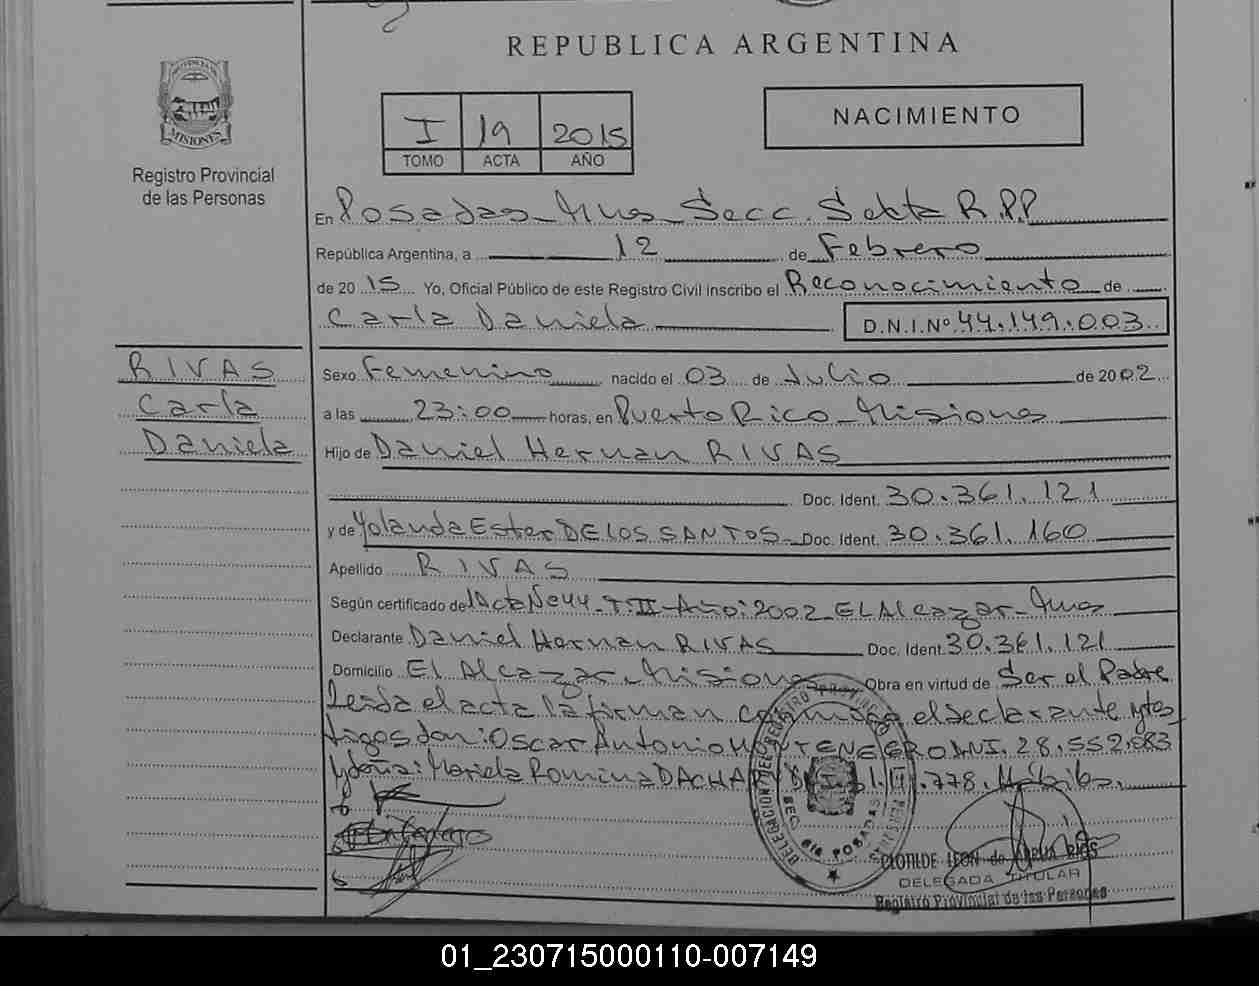 REPUBLICA ARGENTINA
PROVINCIA DE
MISIONES
Registro Provincial
de las Personas
I 19 2015
TOMO ACTA AÑO
NACIMIENTO
En Posadas - Mnes - Secc. Sexta R.P.P.
República Argentina, a 12 de Febrero
de 2015 Yo, Oficial Público de este Registro Civil inscribo el Reconocimiento de
Carla Daniela D.N.I.Nº 44.149.003
RIVAS
Carla
Daniela
Sexo Femenino nacido el 03 de Julio de 2002
a las 23:00 horas, en Puerto Rico - Misiones
Hijo de Daniel Hernan RIVAS
Doc. Ident. 30.361.121
y de Yolanda Ester DE LOS SANTOS - Doc. Ident. 30.361.160
Apellido RIVAS
Según certificado de Acta Nº 44 - T: II - Año: 2002 - El Alcazar - Mnes
Declarante Daniel Hernan RIVAS Doc. Ident. 30.361.121
Domicilio El Alcazar - Misiones Obra en virtud de Ser el Padre
Leida el acta la firman conmigo el declarante y tes
tigos don: Oscar Antonio MONTENEGRO DNI. 28.552.083
y doña: Mariela Romina DACHARY .778. Hábiles.
DELEGACION DEL REGISTRO
SEC. 6ta POSADAS
CLOTILDE LEON de
DELEGADA TITULAR
Registro Provincial de las Personas
01_230715000110-007149